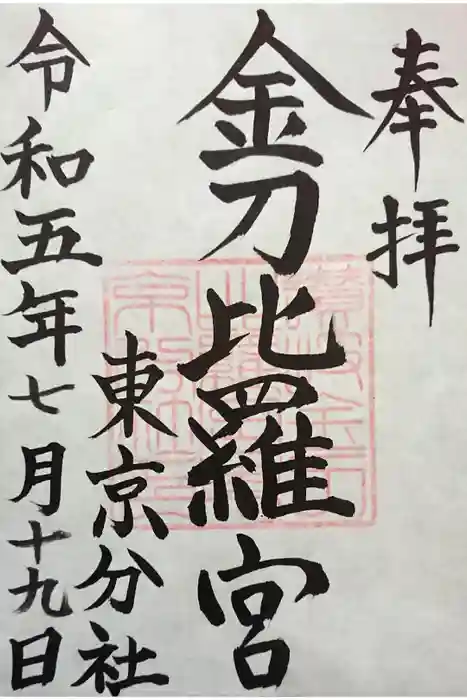 奉拝
金刀比羅宮
東京分社
令和五年七月十九日